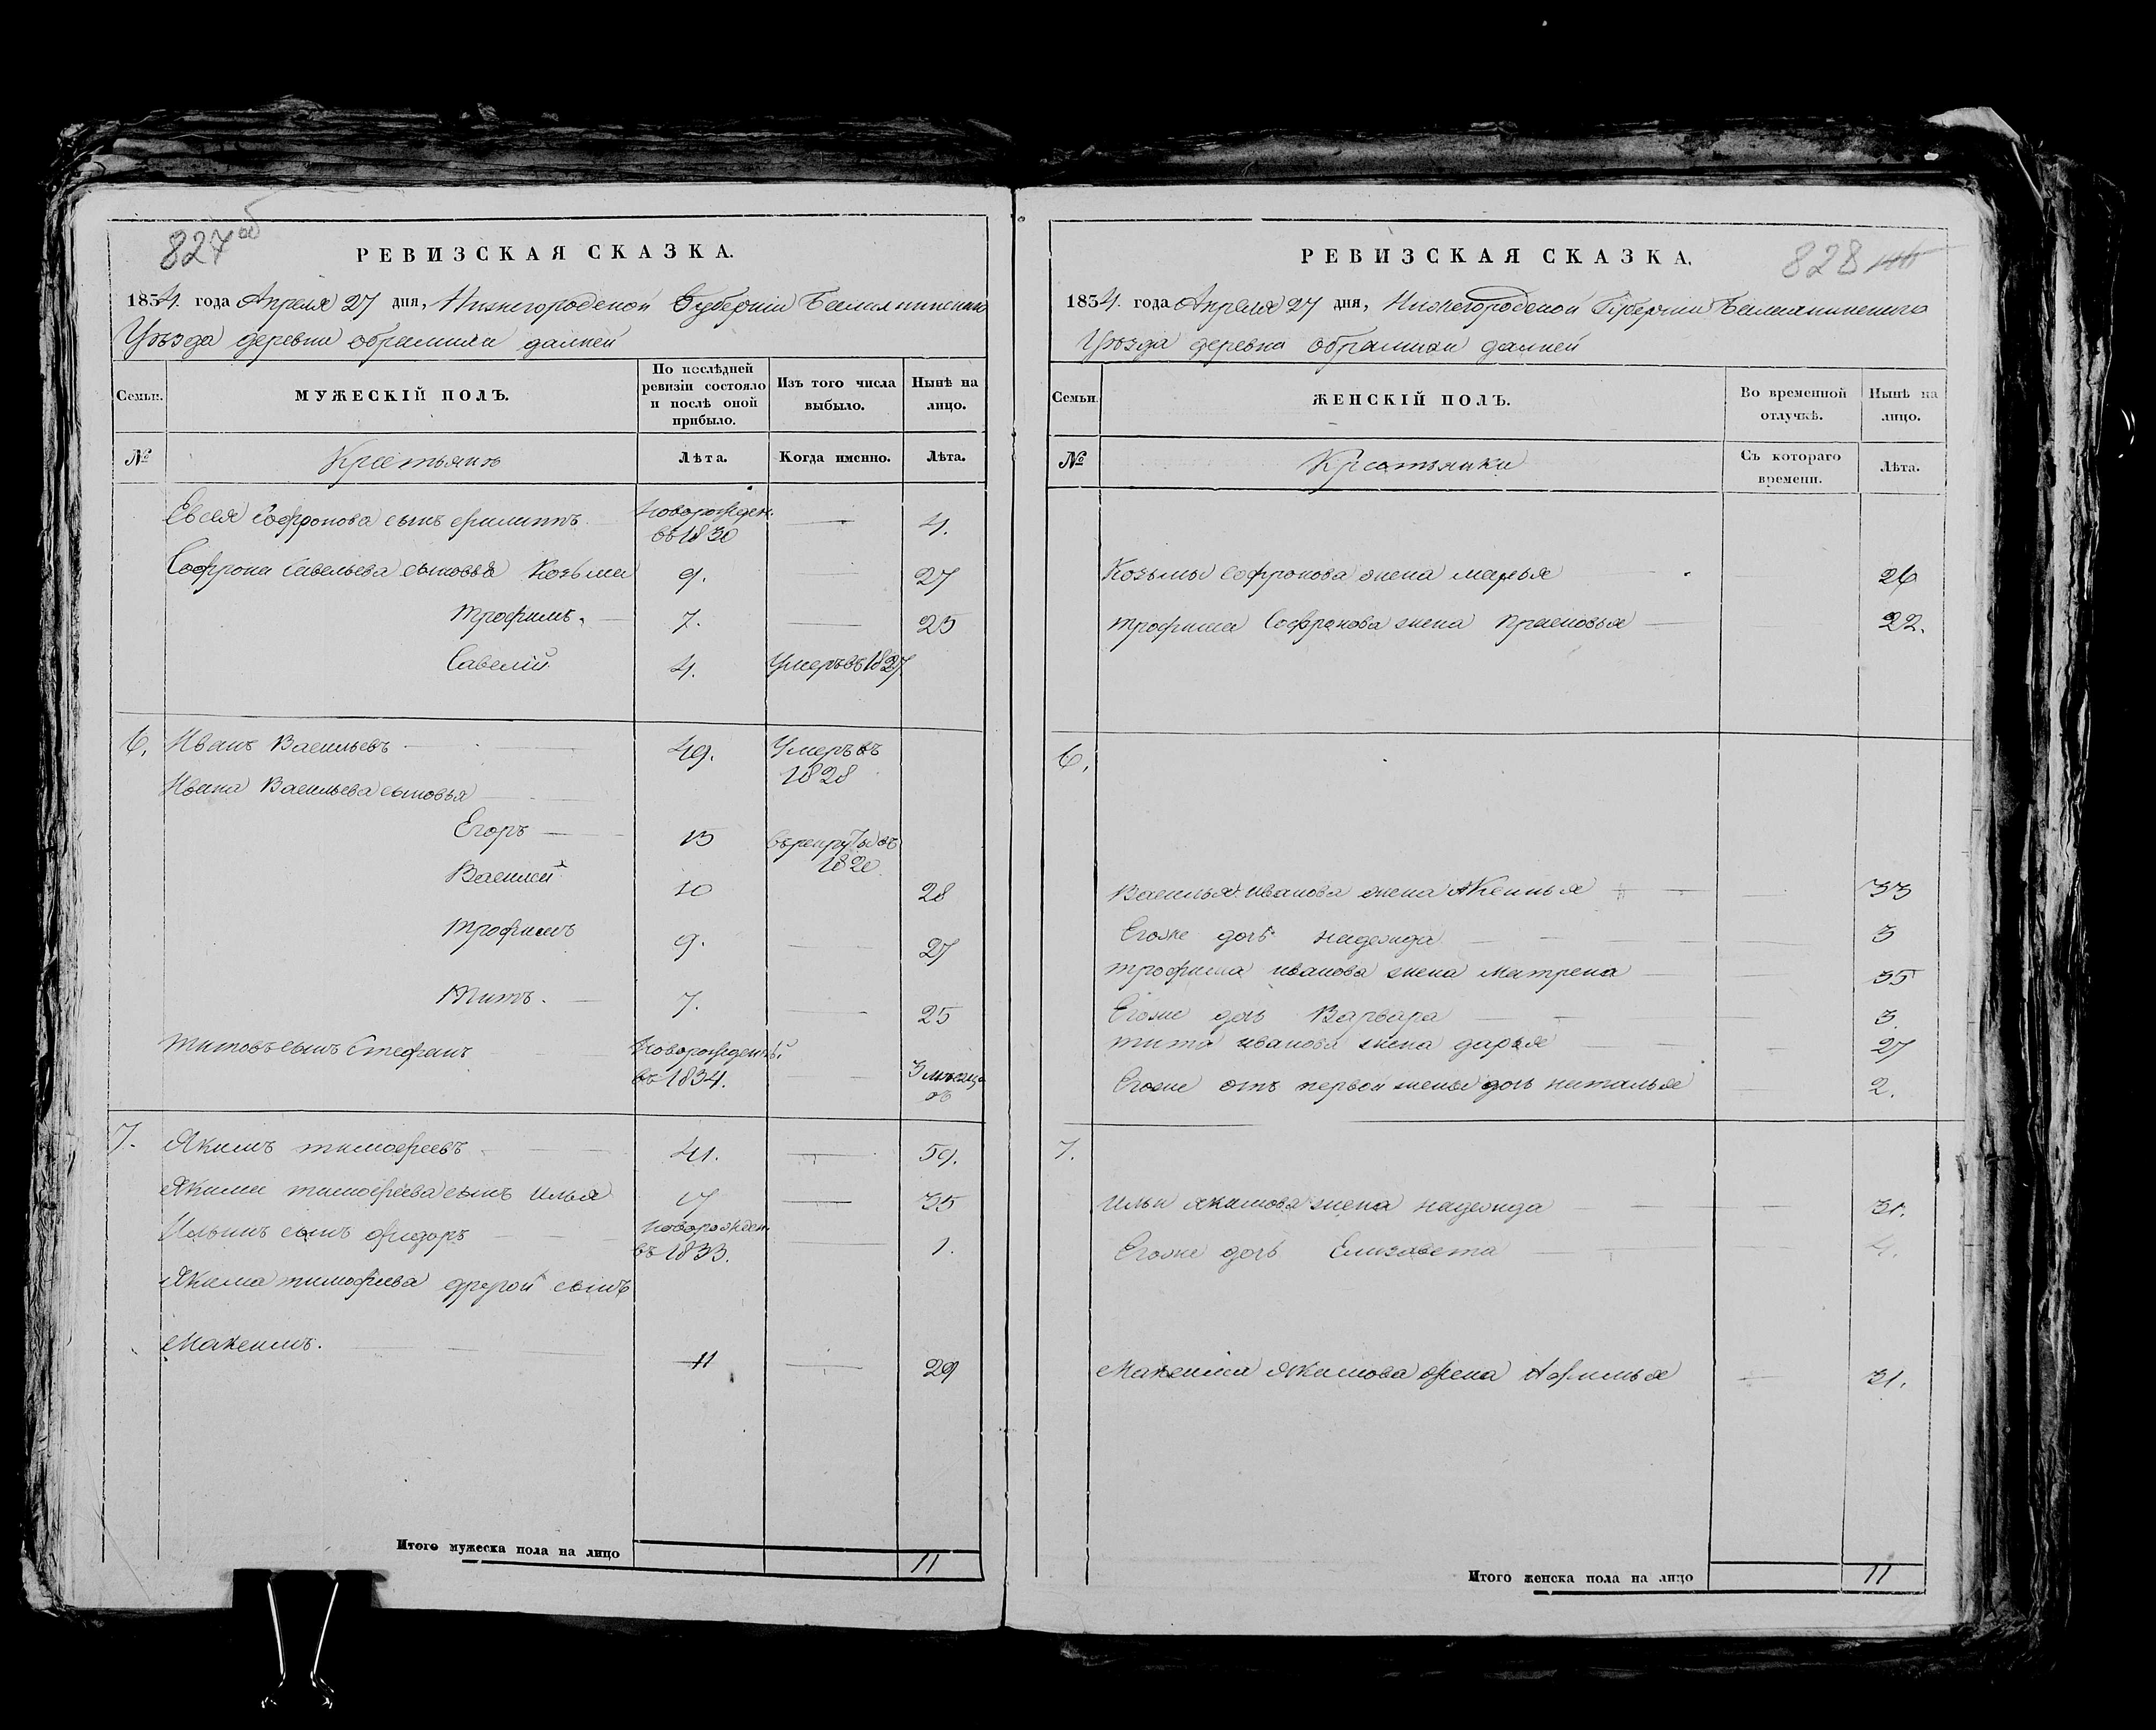 827 об
РЕВИЗСКАЯ СКАЗКА.
1834. года Апреля 27 дня, Нижегородской Губернии Балахнинскаго
Уезда деревни обрамихи далней
Семьи.
МУЖЕСКІЙ ПОЛЪ.
По послѣдней ревизіи состояло и послѣ оной прибыло.
Изъ того числа выбыло.
Нынѣ на лицо.
№
Крестьянъ
Лѣта.
Когда именно.
Лѣта.
Евсея Софронова сынъ филиппъ новорожден. въ 1830 — 4.
Софрона савельева сыновья Козьма 9. — 27
трофимъ. 7. — 25
Савелій 4. Умеръ въ 1827
6. Иванъ Васильевъ 49. Умеръ въ 1828
Ивана Васильева сыновья
Егоръ 15 въ рекруты въ 1820
Василей 10 28
Трофимъ 9. — 27
Титъ. 7. — 25
Титовъ сынъ Стефанъ новорожденный въ 1834. — 3 месяцовъ
7. Якимъ тимофеевъ 41. — 59.
Якима тимофеева сынъ илья 17 — 35
Ильинъ сынъ фидоръ новорожден. въ 1833. — 1.
Якима тимофеева другой сынъ
Максимъ. 11 — 29
Итого мужеска пола на лицо 11
828
РЕВИЗСКАЯ СКАЗКА.
1834. года Апреля 27 дня, Нижегородской Губернии Балахнинскаго
Уезда деревни обрамихи далней
Семьи.
ЖЕНСКІЙ ПОЛЪ.
Во временной отлучкѣ.
Нынѣ на лицо.
№
Крестьянки
Съ котораго времени.
Лѣта.
Козьмы софронова жена марья 26
трофима Софронова жена прасковья 22.
6.
Василья иванова жена Аксинья — 33
Егоже дочь надежда — 3
трофима иванова жена матрена — 35
Егоже дочь Варвара — 3.
тита иванова жена дарья — 27
Егоже отъ первой жены дочь наталья — 2.
7.
ильи якимова жена надежда — 31.
Егоже дочь Елизавета — 4.
Максима Якимова жена Афимья — 31.
Итого женска пола на лицо 11